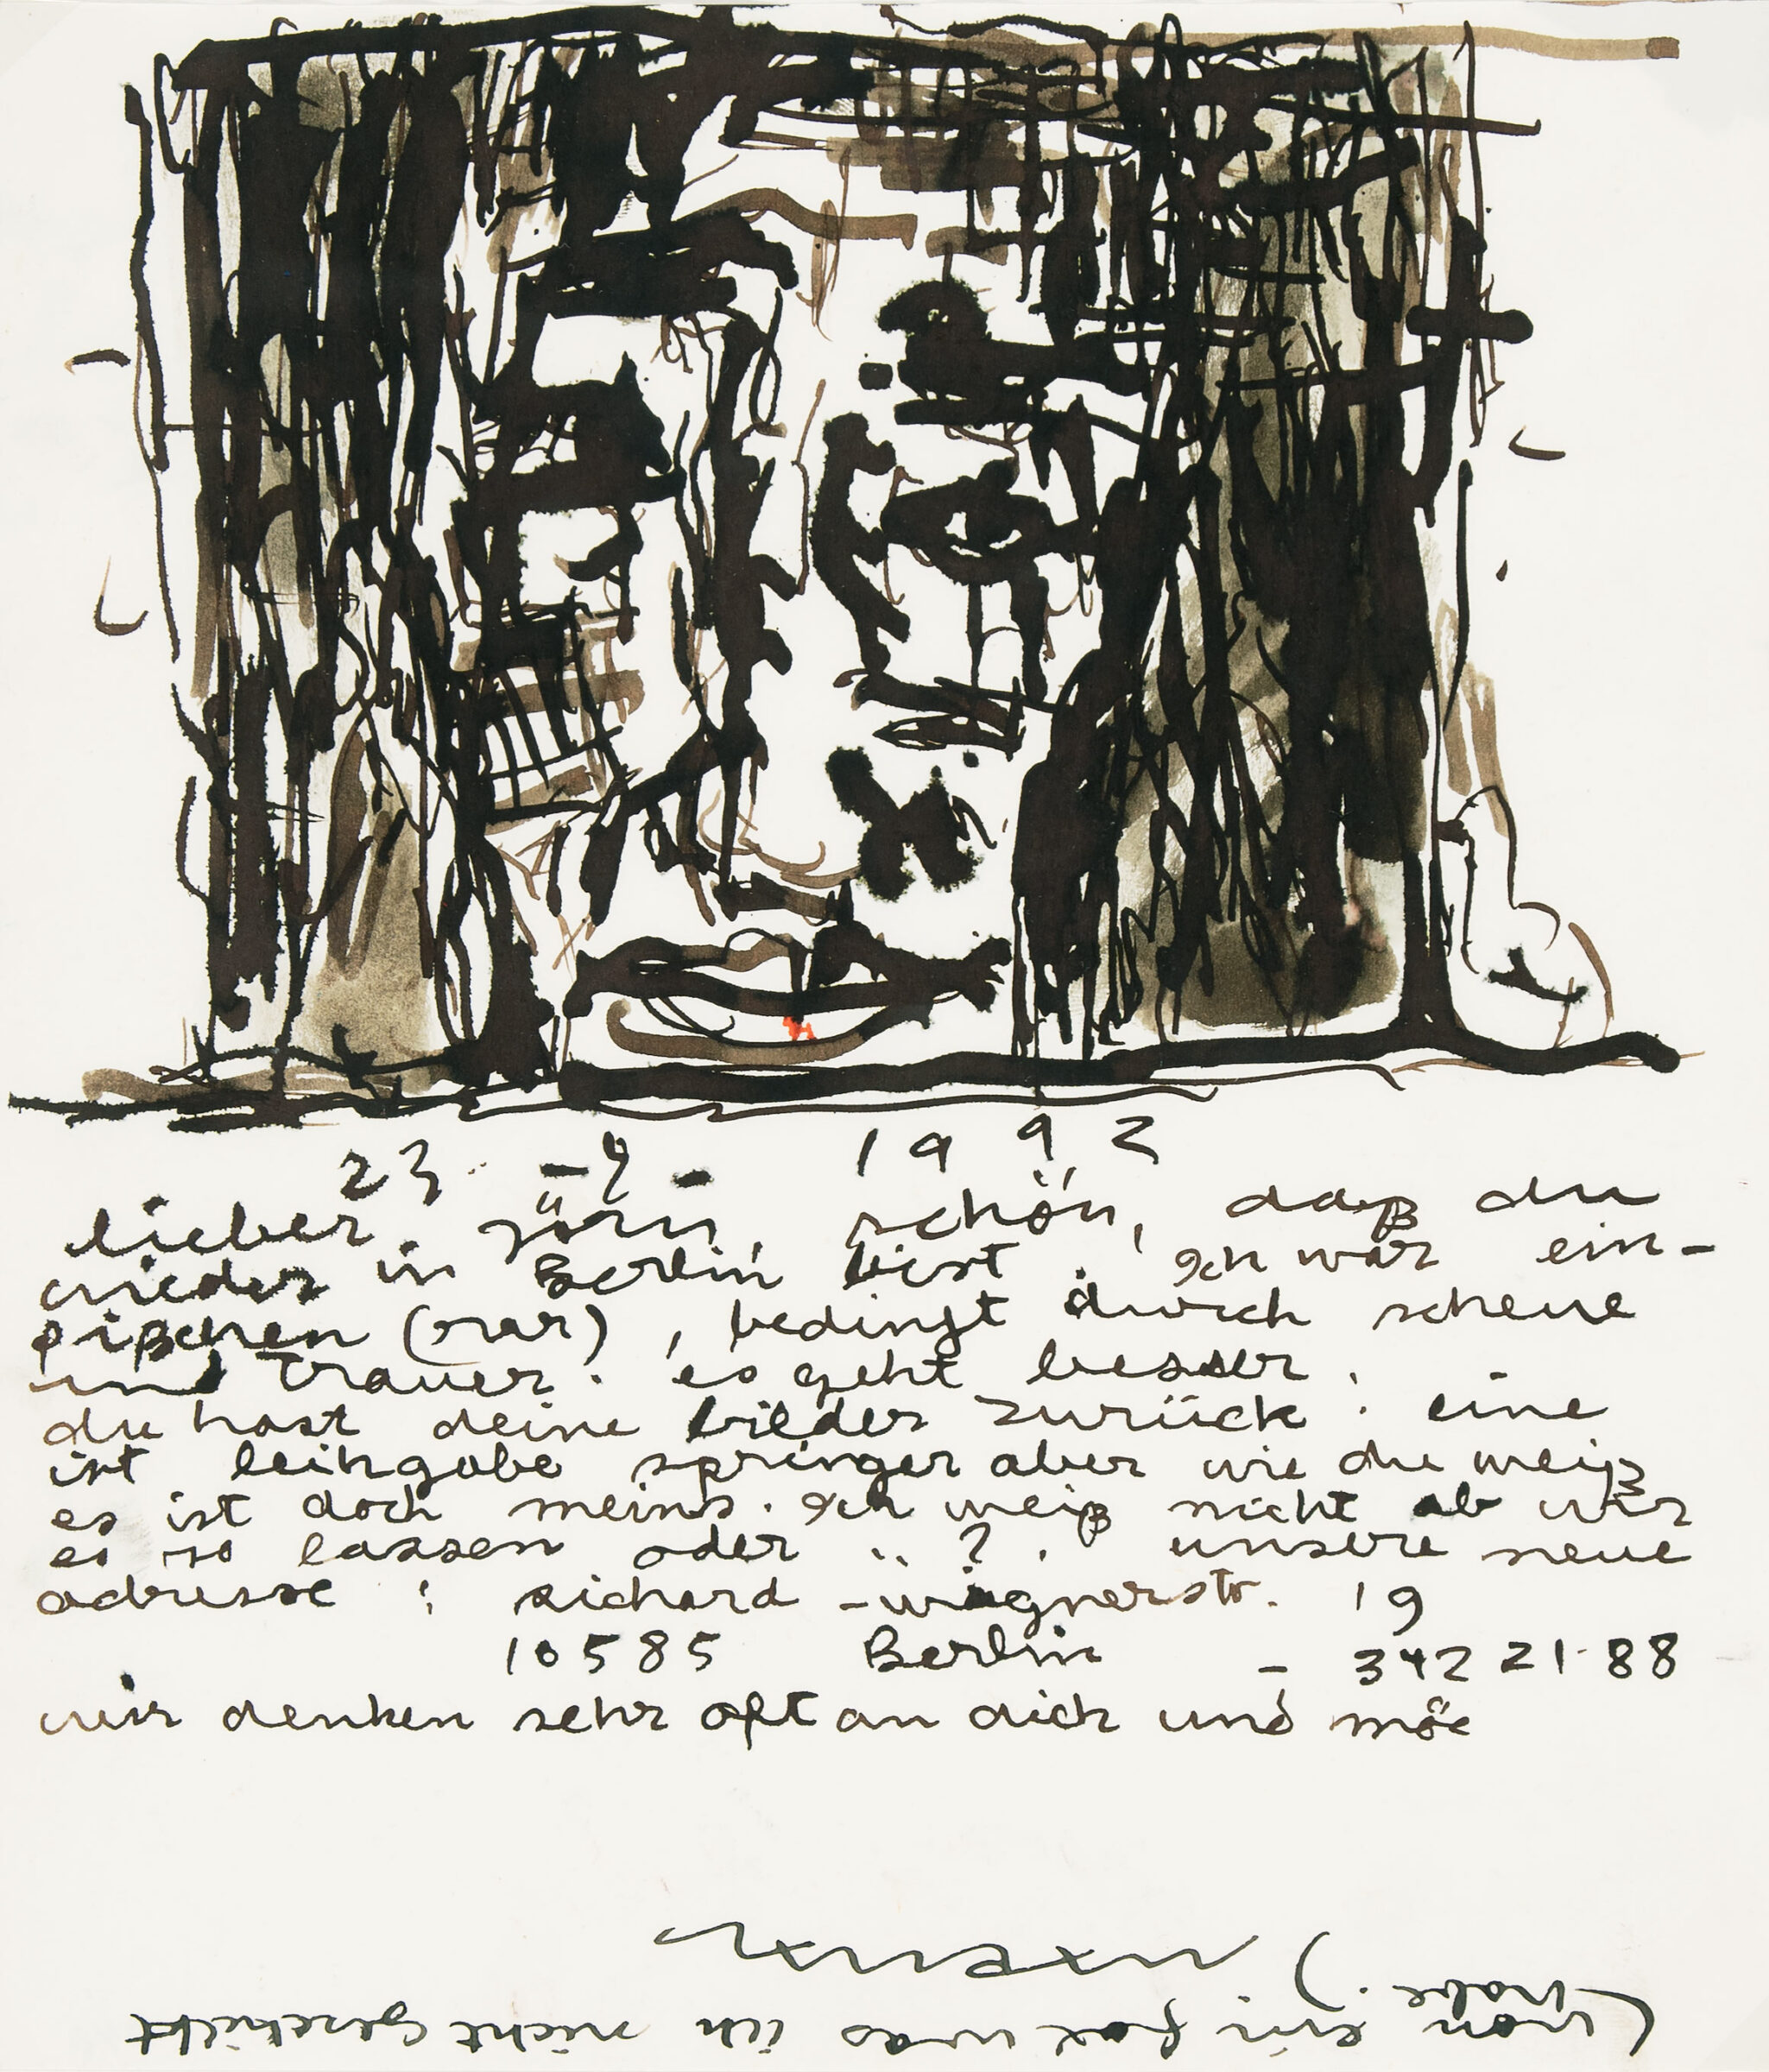 23. -4- 1992
lieber jörn, schön, daß du
wieder in Berlin bist. ich war ein-
pißchen (rar), bedingt durch scheue
und trauer. es geht besser.
du hast deine bilder zurück. eine
ist leihgabe springer aber wie du weiß
es ist doch meins. ich weiß nicht ob wir
es so lassen oder ..?. unsere neue
adresse: richard-wagnerstr. 19
10585 Berlin - 342 21 88
wir denken sehr oft an dich und möc
(von ein fax was ich nicht geschickt
habe.)